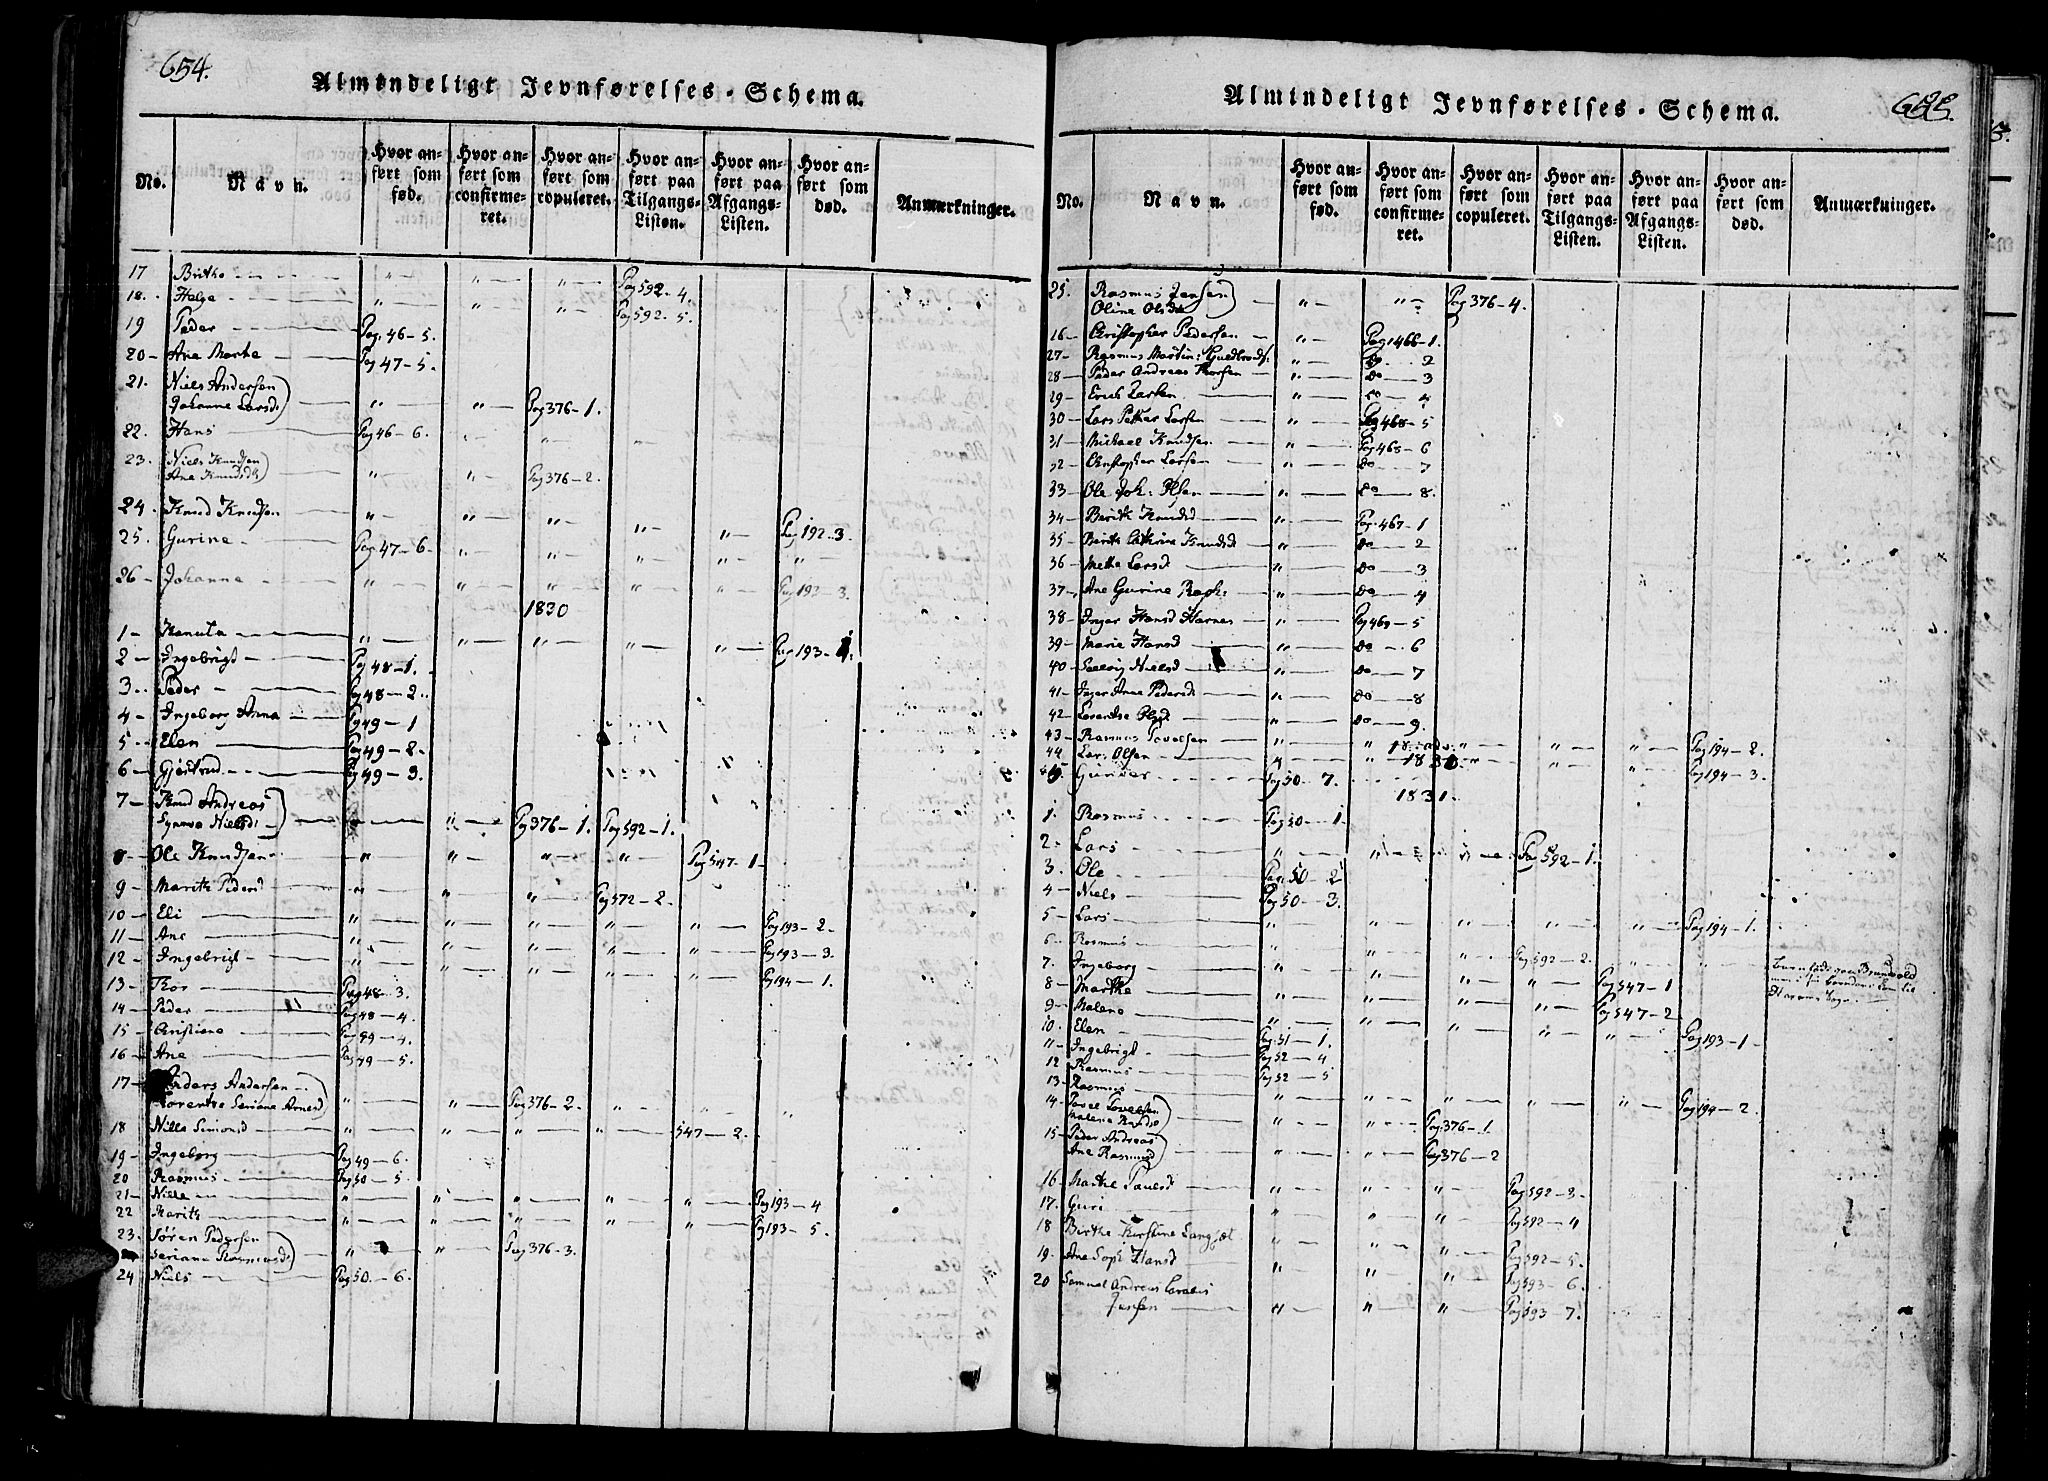 654.
Almindeligt Jevnførelses-Schema.
No. Navn. Hvor anført som fød. Hvor anført som confirmeret. Hvor anført som copuleret. Hvor anført paa Tilgangs-Listen. Hvor anført paa Afgangs-Listen. Hvor anført som død. Anmærkninger.
17 Birthe " " " Pag 592-4.
18. Helge " " " Pag 592-5.
19 Peder Pag. 46-5.
20- Ane Marte Pag 47-5.
21. Niels Andersen
Johanne Larsd. " " Pag 376-1.
22. Hans Pag 46-6. " " "
23. Niels Knudsen
Ane Knudsd. " " Pag 376-2.
24. Knud Knudsen " " " " " Pag 192-3.
25. Gurine Pag 47-6. " " " " "
26- Johanne " " " " " Pag 193-3.
1830
1- Kanuta " " " " " Pag 193-1.
2- Ingebrigt Pag 48-1.
3. Peder Pag 48-2.
4- Ingeborg Anna Pag 49-1
5- Elen Pag 49-2-
6- Gjertrud Pag 49-3.
7- Knud Andreas
Synneva Nielsd. " " Pag 376-1. Pag 592-1.
8- Ole Knudsen " " " " Pag 547-1
9- Marith Pedersd " " " Pag 572-2.
10- Eli " " " " " Pag 193-2.
11- Ane " " " " " Pag 193-3.
12- Ingebrigt " " " " " Pag 194-1.
13- Thor Pag 48-3.
14- Peder Pag 48-4.
15- Christiane Pag 49-4.
16- Ane Pag 49-5.
17- Anders Andersen
Lorentse Seriane Arnesd " " Pag 376-2. " " "
18 Nills Simonsd " " " " 547-2.
19- Ingeborg Pag 49-6.
20 Rasmus Pag 50-5.
21- Nille " " " " " Pag 193-4
22 Marith " " " " " Pag 193-5.
23. Søren Pedersen
Seriane Rasmusd. " " Pag 376-3.
24 Niels Pag 50-6.
Almindeligt Jevnførelses-Schema.
655.
No. Navn. Hvor anført som fød. Hvor anført som confirmeret. Hvor anført som copuleret. Hvor anført paa Tilgangs-Listen. Hvor anført paa Afgangs-Listen. Hvor anført som død. Anmærkninger.
25. Rasmus Jensen
Oline Olsd. " " Pag 376-4.
16- Christopher Pedersen " Pag. 466-1.
27- Rasmus Martin: Guldbrands. " do 2
28 Peder Andreas Thorsen " do 3
29- Erich Larsen " do 4
30- Lars Petter Larsen " Pag 468-5
31- Michael Knudsen " Pag 468-6
32- Christopher Larsen " do 7
33- Ole Joh: Olsen " do 8.
34- Berith Knudsd " Pag. 467-1
35- Berith Cathrine Knudsd " do 2
36- Mette Larsd " do 3
37- Ane Gurine " do 4
38- Inger Hansd Harnes " Pag 469-5
39- Marie Hansd " do 6
40- Solvig Nielsd " do 7
41- Inger Anne Pedersd. " do 8
42- Lorentse Olsd. " do 9.
43- Rasmus Povelsen " " " " " Pag 194-2.
44. Lars Olsen " " 1830. " " " Pag 194-3.
45 Guri Pag 50-7.
1831.
1. Rasmus Pag 50-1
2- Lars " " " Pag 592-1.
3. Ole Pag. 50-2
4- Niels Pag 50-3.
5- Lars " " " " " Pag 194-1.
6- Rasmus " " " Pag 592-2. " "
7. Ingeborg " " " " Pag 547-1
8- Marthe " " " " Pag 547-2
9- Malene " " " " " Pag 193-1
10. Elen Pag. 51-1.
11- Ingebrigt Pag 52-4
12 Rasmus Pag 52-5
13- Rasmus " " " " " Pag 194-2.
14. Povel Povelsen
Malene Knudsd " " Pag. 376-1.
15- Peder Andreas
Ane Rasmusd " " Pag 376-2
16- Marthe Paulsd " " " Pag 592-3-
17. Guri " " " Pag 592-4
18 Birthe Kirstine Langsæt " " " Pag 592-5.
19. Ane Soph. Hansd " " " Pag 593-6.
20 Samuel Andreas
Jensen " " " Pag 593-7.